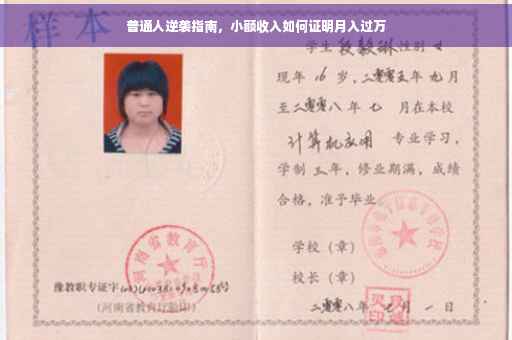 普通人逆袭指南，小额收入如何证明月入过万
样本
学生 段毅琳 性别 女
现年 16 岁，二零零五年 九 月
至二零零八年 七 月在本校
计算机应用 专业学习，
学制 三 年，修业期满，成绩
合格，准予毕业
学校（章）
校长（章）
二零零八年 七 月 一 日
河南省教育厅
豫教职专证字
（河南省教育厅验印）